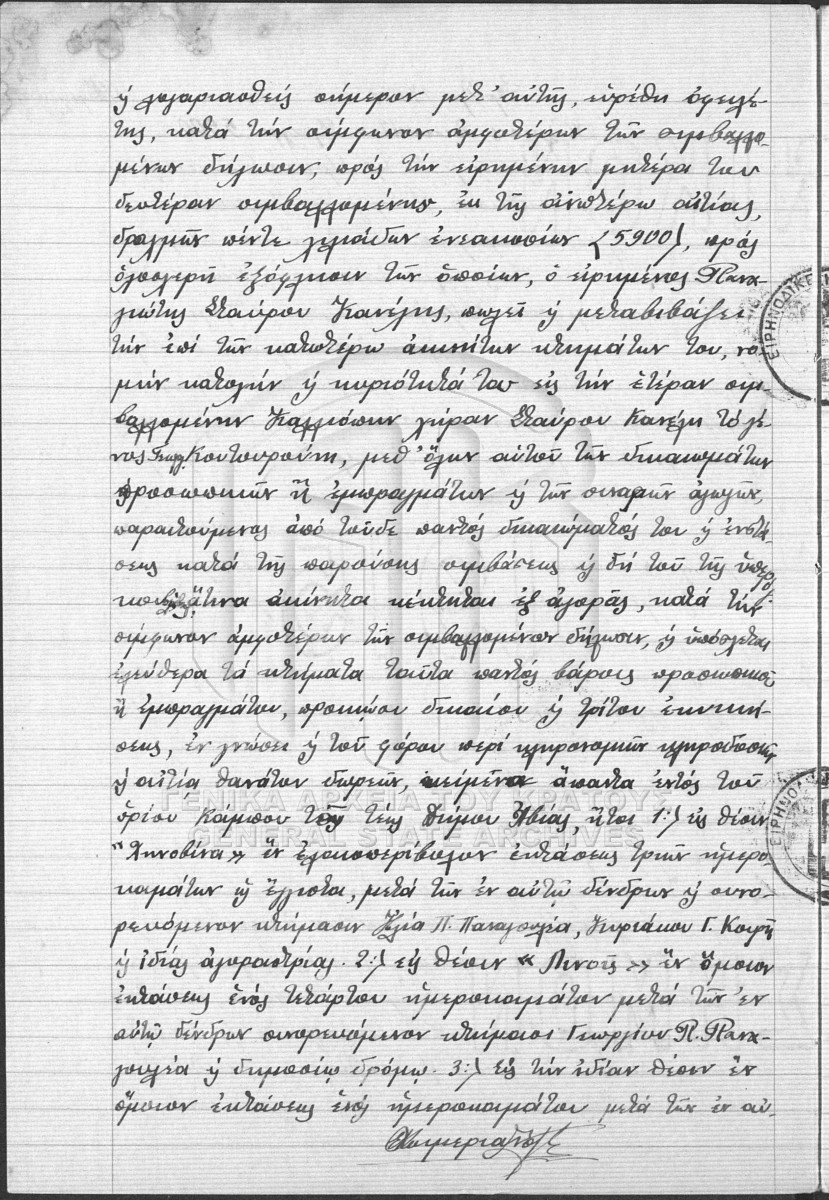 ἤ λογαριασθείς σήμερον μετ' αὐτῆς, εὑρέθη ὀφειλέ-
της, κατά τήν σύμφωνον ἀμφοτέρων τῶν συμβαλλο-
μένων δήλωσιν, πρός τήν εἰρημένην μητέρα του
δευτέραν συμβαλλομένην, ἐκ τῆς ἀνωτέρω αἰτίας,
δραχμῶν πέντε χιλιάδων ἐνεακοσίων (5900), πρός
ὁλοσχερῆ ἐξόφλησιν τῶν ὁποίων, ὁ εἰρημένος Πανα-
γιώτης Σταύρου Κανέλης, πωλεῖ ἤ μεταβιβάζει
τήν ἐπί τῶν κατωτέρω ἀκινήτων κτημάτων του, νο-
μήν κατοχήν ἤ κυριότητά του εἰς τήν ἑτέραν συμ-
βαλλομένην Καλλιόπην χήραν Σταύρου Κανέλη τό γέ-
νος Γεωργ. Κουτουρούνη, μεθ' ὅλων αὐτοῦ τῶν δικαιωμάτων
προσωπικῶν ἤ ἐμπραγμάτων ἤ τῶν συναφῶν ἀγωγῶν,
παραιτούμενος ἀπό τοῦδε παντός δικαιώματός του ἤ ἐνστά-
σεως κατά τῆς παρούσης συμβάσεως ἤ δή τοῦ τῆς ὑπερ
ἅτινα ἀκίνητα κέκτηται ἐξ ἀγορᾶς, κατά τήν
σύμφωνον ἀμφοτέρων τῶν συμβαλλομένων δήλωσιν, ἤ ὑπόσχεται
ἐλεύθερα τά κτήματα ταῦτα παντός βάρους προσωπικοῦ
ἤ ἐμπραγμάτου, προικώου δικαίου ἤ τρίτου ἐκνική-
σεως, ἐν γνώσει ἤ τοῦ φόρου περί κληρονομιῶν κληροδοσιῶν
ἤ αἰτία θανάτου δωρεῶν, κείμενα ἅπαντα ἐντός τοῦ
ὁρίου Κάμπου τῆς τέως Δήμου Ἀβίας, ἤτοι 1:) εἰς θέσιν
ἕν ἐλαιοπερίβολον ἐκτάσεως τριῶν ἡμερο-
καμάτων ἤ ἔγγιστα, μετά τῶν ἐν αὐτῷ δένδρων ἤ συνο-
ρευόμενον κτήμασιν Ἠλία Π. Παναγουλέα, Κυριάκου Γ.
ἤ ἰδίας ἀγοραστρίας. 2:) εἰς θέσιν « Λινοῆς » ἕν ὅμοιον
ἐκτάσεως ἑνός τετάρτου ἡμεροκαμάτου μετά τῶν ἐν
αὐτῷ δένδρων συνορευόμενον κτήμασι Γεωργίου Π. Πανα-
γουλέα ἤ δημοσίῳ δρόμῳ. 3:) Εἰς τήν ἰδίαν θέσιν ἕν
ὅμοιον ἐκτάσεως ἑνός ἡμεροκαμάτου μετά τῶν ἐν αὐ-
ΕΙΡΗΝΟΔΙΚΕ
ΕΙΡΗΝΟΔ
ΓΕΝΙΚΑ ΑΡΧΕΙΑ ΤΟΥ ΚΡΑΤΟΥΣ
GENERAL STATE ARCHIVES